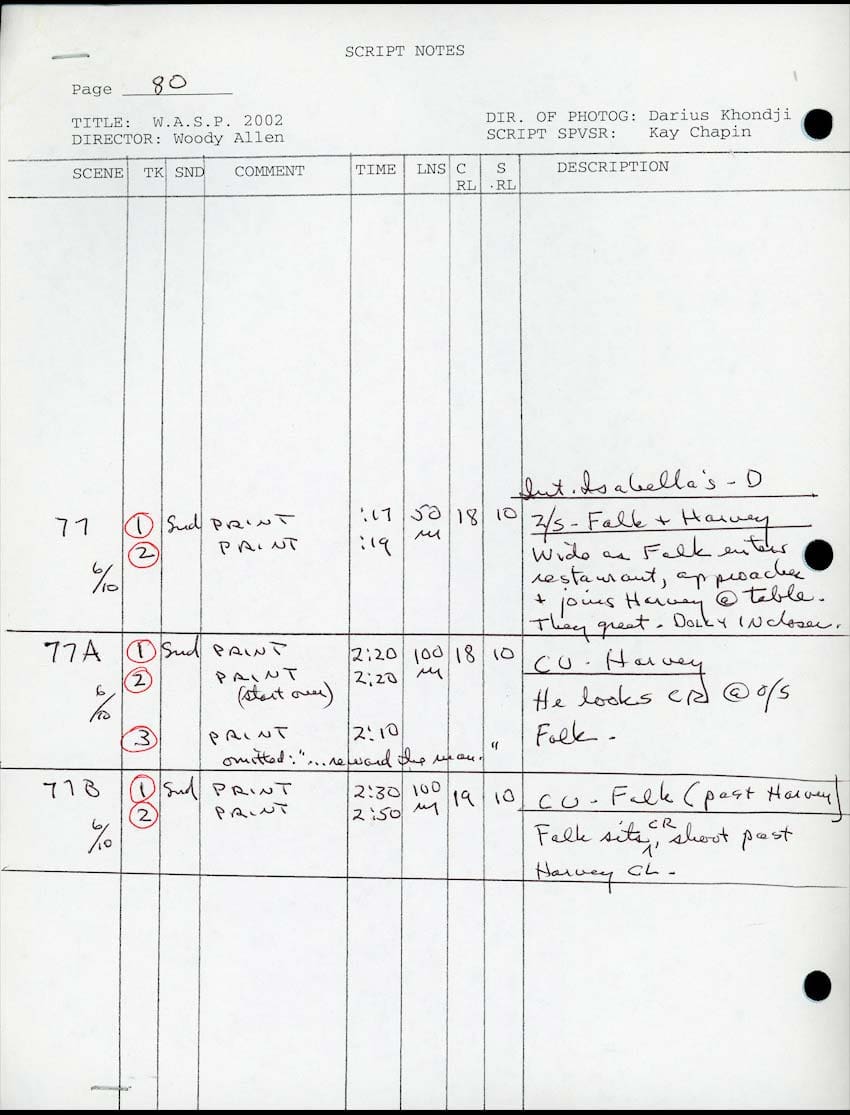 SCRIPT NOTES
Page 80
TITLE: W.A.S.P. 2002
DIRECTOR: Woody Allen
DIR. OF PHOTOG: Darius Khondji
SCRIPT SPVSR: Kay Chapin
SCENE TK SND COMMENT TIME LNS C RL S .RL DESCRIPTION
Int. Isabella's - D
77 1 Snd PRINT :17 50 18 10 2/S - Falk + Harvey
2 PRINT :19 m Wide as Falk enters
6/10 restaurant, approaches
+ joins Harvey @ table.
They great. DOLLY IN closer.
77A 1 Snd PRINT 2:20 100 18 10 CU - Harvey
2 PRINT 2:20 m
6/10 (start over) He looks CR @ o/s
3 PRINT 2:10 Falk.
omitted: "...reward the man."
77B 1 Snd PRINT 2:30 100 19 10 CU - Falk (past Harvey)
2 PRINT 2:50 m
6/10 Falk sits CR, shoot past
Harvey CL.